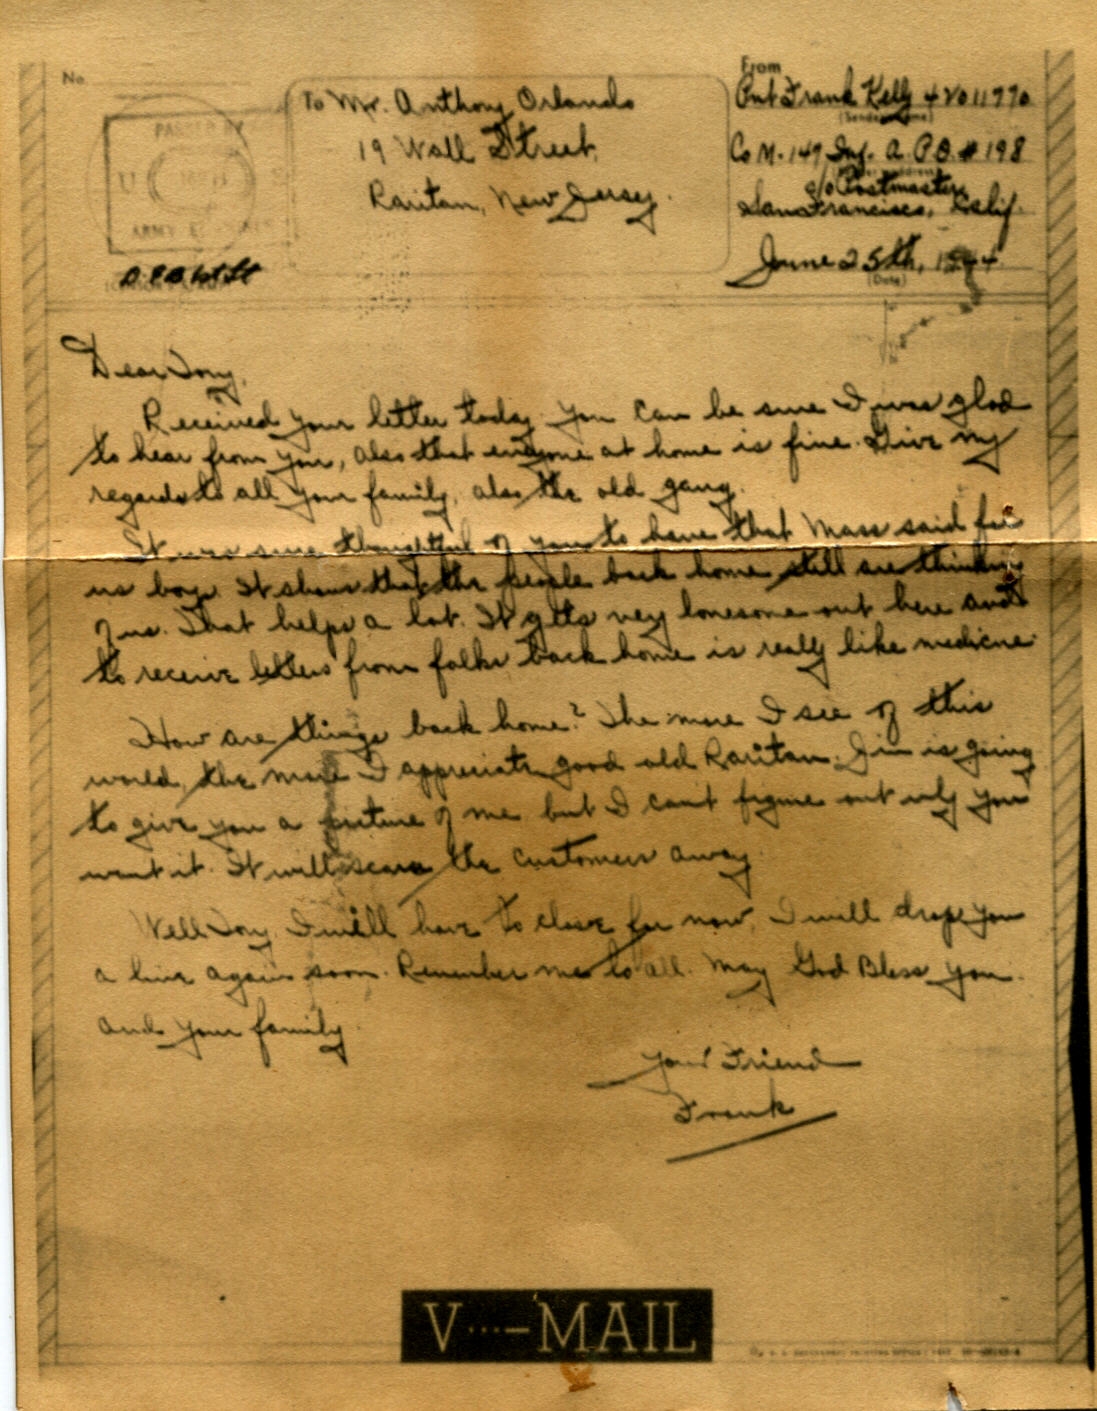 No.
To Mr. Anthony Orlando
19 Wall Street,
Raritan, New Jersey.
From
Pvt Frank Kelly 42011770
(Sender's name)
Co M. 149 Inf. A PO # 198
c/o Postmaster
San Francisco, Calif.
June 25th, 1944
(Date)
PASSED BY
U S
ARMY
Dear Tony,
Received your letter today. You can be sure I was glad
to hear from you, also that everyone at home is fine. Give my
regards to all your family, also the old gang.
It was sure thoughtful of you to have that Mass said for
us boys. It shows that the people back home still are thinking
of us. That helps a lot. It gets very lonesome out here and
to receive letters from folks back home is really like medicine.
How are things back home? The more I see of this
world, the more I appreciate good old Raritan. Jim is going
to give you a picture of me but I can't figure out why you
want it. It will scare the customers away.
Well Tony, I will have to close for now, I will drope you
a line again soon. Remember me to all. May God Bless you
and your family.
Your Friend
Frank
V···—MAIL